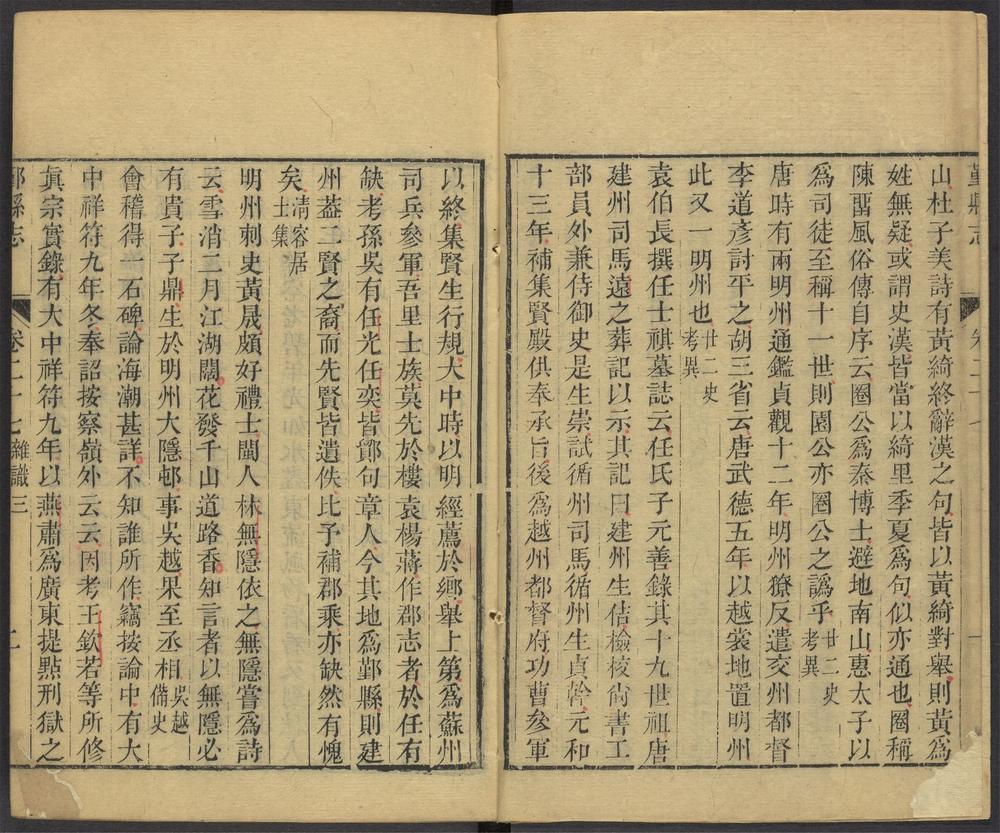 鄞縣志
卷二十七
山杜子美詩有黃綺終辭漢之句皆以黃綺對舉則黃爲
姓無疑或謂史漢皆當以綺里季夏爲句似亦通也圈稱
陳畱風俗傳自序云圈公爲秦博士避地南山惠太子以
爲司徒至稱十一世則園公亦圈公之譌乎廿二史考異
唐時有兩明州通鑑貞觀十二年明州獠反遣交州都督
李道彥討平之胡三省云唐武德五年以越裳地置明州
此又一明州也廿二史考異
袁伯長撰任士祺墓誌云任氏子元善錄其十九世祖唐
建州司馬遠之葬記以示其記曰建州生佶檢校尙書工
部員外兼侍御史是生崇試循州司馬循州生貞幹元和
十三年補集賢殿供奉承旨後爲越州都督府功曹參軍
以終集賢生行規大中時以明經薦於鄉舉上第爲蘇州
司兵參軍吾里士族莫先於樓袁楊蔣作郡志者於任有
缺考孫吳有任光任奕皆鄮句章人今其地爲鄞縣則建
州葢二賢之裔而先賢皆遺佚比予補郡乘亦缺然有愧
矣清容居士集
明州刺史黃晟頗好禮士閩人林無隱依之無隱嘗爲詩
云雪消二月江湖闊花發千山道路香知言者以無隱必
有貴子子鼎生於明州大隱邨事吳越果至丞相吳越備史
會稽得一石碑論海潮甚詳不知誰所作竊按論中有大
中祥符九年冬奉詔按察嶺外云云因考王欽若等所修
眞宗實錄有大中祥符九年以燕肅爲廣東提點刑獄之
鄞縣志
卷二十七 雜識三
二